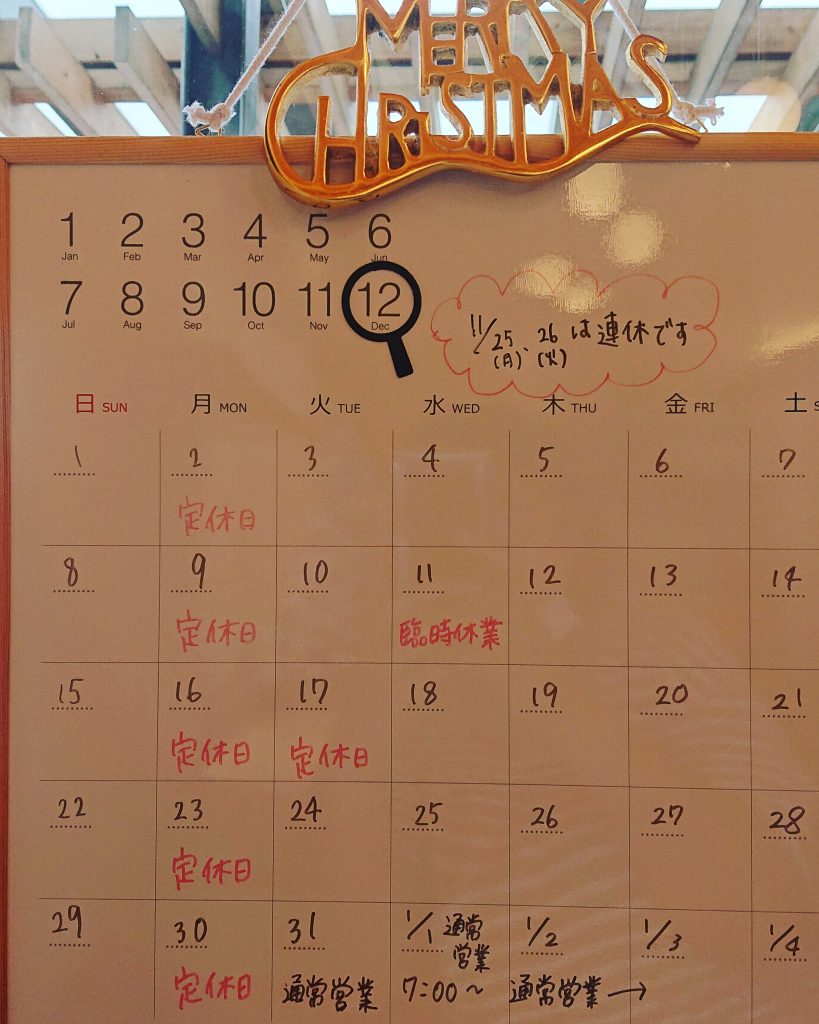 MERRY
CHRISTMAS
1 2 3 4 5 6
Jan Feb Mar Apr May Jun
7 8 9 10 11 12
Jul Aug Sep Oct Nov Dec
11/25、26は連休です
(月) (火)
日 SUN 月 MON 火 TUE 水 WED 木 THU 金 FRI 土
1 2 3 4 5 6 7
定休日
8 9 10 11 12 13 14
定休日 臨時休業
15 16 17 18 19 20 21
定休日 定休日
22 23 24 25 26 27 28
定休日
29 30 31 1/1 通常営業 1/2 1/3 1/4
定休日 通常営業 7:00〜 通常営業→